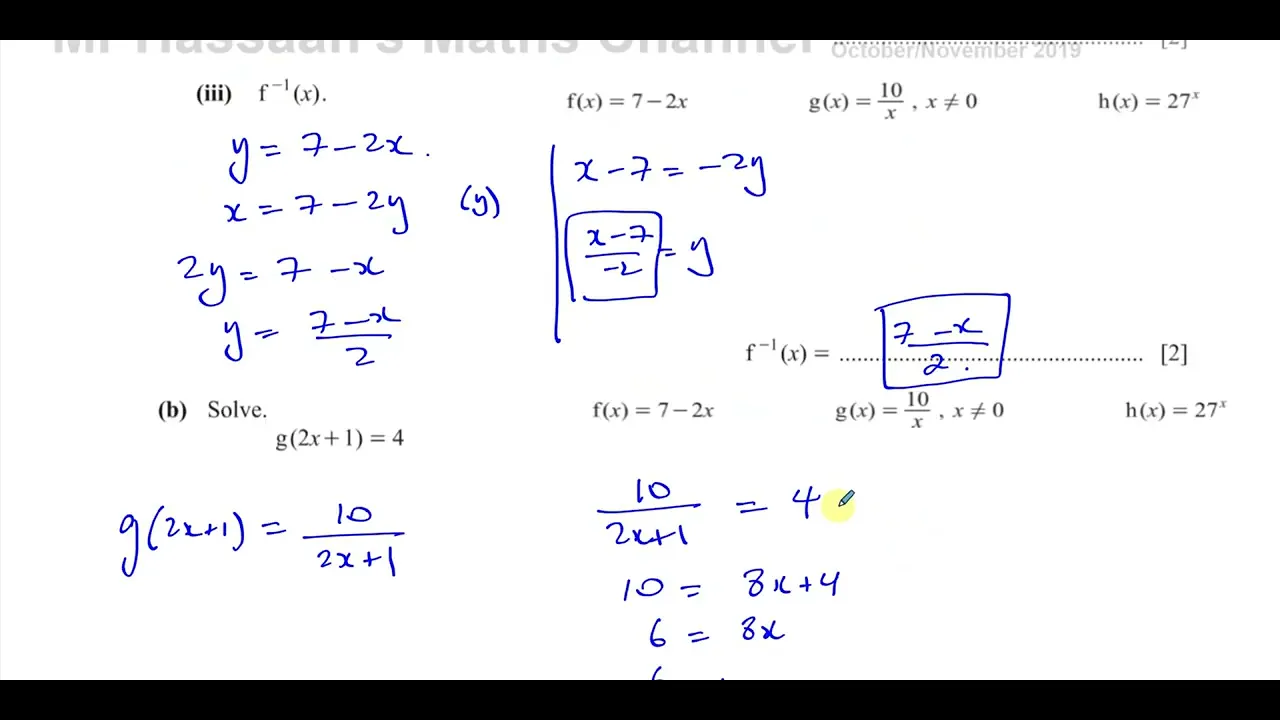 Mr Hassaan's Maths Channel
October/November 2019
........ [2]
(iii) f⁻¹(x). f(x) = 7 − 2x g(x) = 10/x , x ≠ 0 h(x) = 27ˣ
y = 7 − 2x .
x = 7 − 2y (y)
2y = 7 − x
y = (7 − x)/2
x − 7 = −2y
(x − 7)/−2 = y
f⁻¹(x) = ........ (7 − x)/2 . ........ [2]
(b) Solve. f(x) = 7 − 2x g(x) = 10/x , x ≠ 0 h(x) = 27ˣ
g(2x+1) = 4
g(2x+1) = 10/(2x+1)
10/(2x+1) = 4
10 = 8x+4
6 = 8x